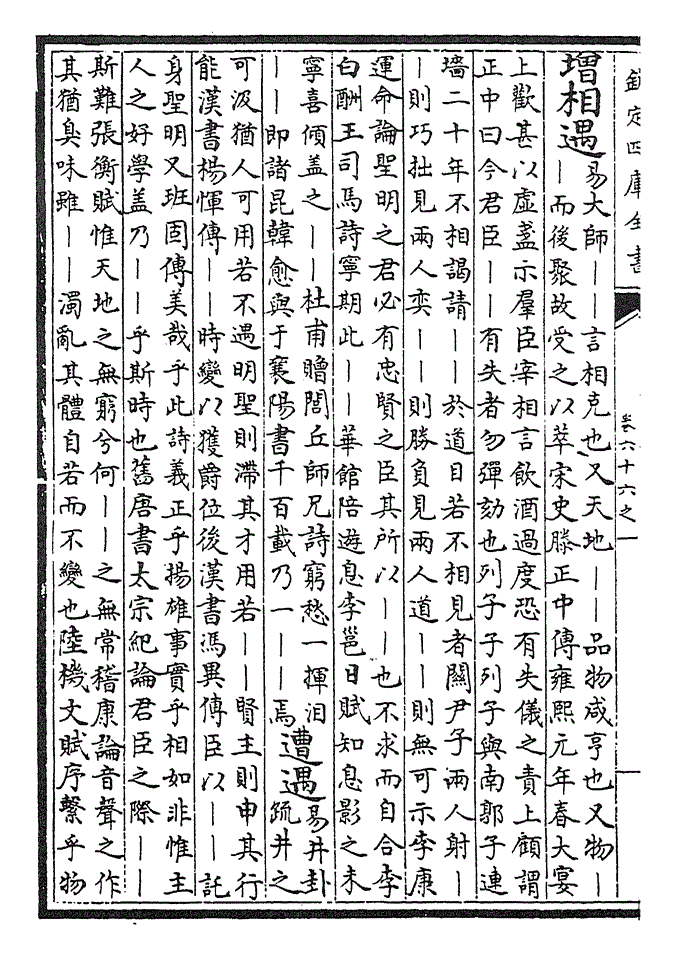 欽定四庫全書
卷六十六之一
增相遇
易大師——言相克也又天地——品物咸亨也又物—
—而後聚故受之以萃宋史滕正中傳雍熙元年春大宴
上歡甚以虛盞示羣臣宰相言飲酒過度恐有失儀之責上顧謂
正中曰今君臣——有失者勿彈劾也列子子列子與南郭子連
墻二十年不相謁請——於道目若不相見者關尹子兩人射—
—則巧拙見兩人奕——則勝負見兩人道——則無可示李康
運命論聖明之君必有忠賢之臣其所以——也不求而自合李
白酬王司馬詩寧期此——華館陪遊息李邕日賦知息影之未
寧喜傾盖之——杜甫贈閭丘師兄詩窮愁一揮泪
——即諸昆韓愈與于襄陽書千百載乃一——焉
遭遇
易井卦
疏井之
可汲猶人可用若不遇明聖則滯其才用若——賢主則申其行
能漢書楊惲傳——時變以獲爵位後漢書馮異傳臣以——託
身聖明又班固傳美哉乎此詩義正乎揚雄事實乎相如非惟主
人之好學盖乃——乎斯時也舊唐書太宗紀論君臣之際——
斯難張衡賦惟天地之無窮兮何——之無常稽康論音聲之作
其猶臭味雖——濁亂其體自若而不變也陸機文賦序繫乎物